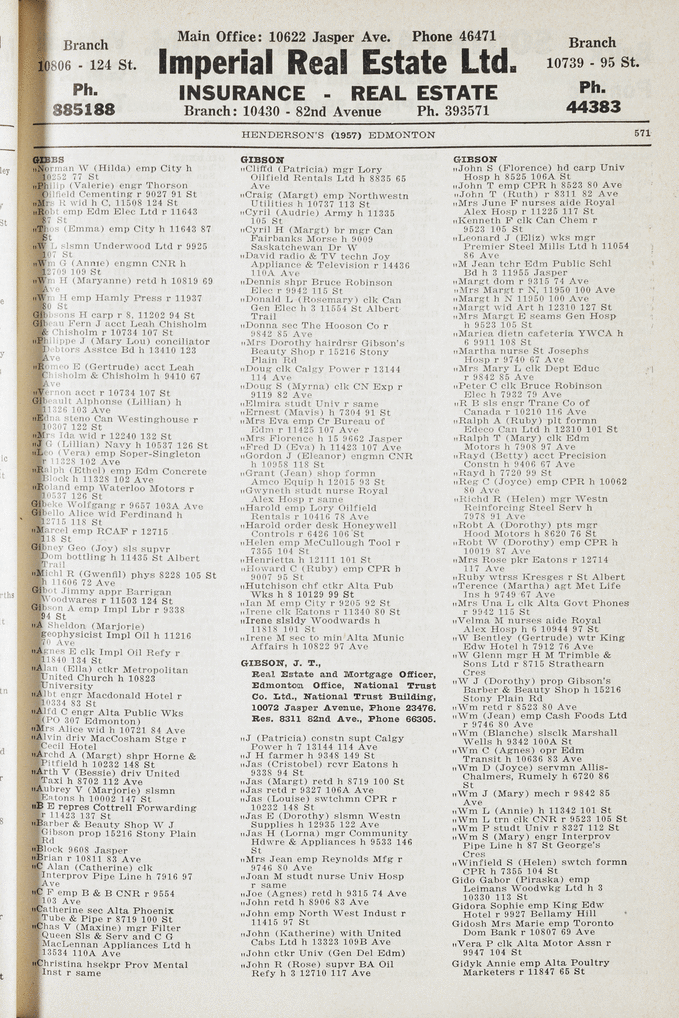 Main Office: 10622 Jasper Ave. Phone 46471
Branch
10806 - 124 St.
Ph.
885188
Imperial Real Estate Ltd.
INSURANCE - REAL ESTATE
Branch: 10430 - 82nd Avenue Ph. 393571
Branch
10739 - 95 St.
Ph.
44383
HENDERSON'S (1957) EDMONTON 571
GIBBS
"Norman W (Hilda) emp City h
10252 77 St
"Philip (Valerie) engr Thorson
Oilfield Cementing r 9027 91 St
"Mrs R wid h C, 11508 124 St
"Robt emp Edm Elec Ltd r 11643
87 St
"Thos (Emma) emp City h 11643 87
St
"W L slsmn Underwood Ltd r 9925
107 St
"Wm G (Annie) engmn CNR h
12709 109 St
"Wm H (Maryanne) retd h 10819 69
Ave
"Wm H emp Hamly Press r 11937
80 St
Gibbsons H carp r 8, 11202 94 St
Gibeau Fern J acct Leah Chisholm
& Chisholm r 10734 107 St
"Philippe J (Mary Lou) conciliator
Debtors Asstce Bd h 13410 123
Ave
"Romeo E (Gertrude) acct Leah
Chisholm & Chisholm h 9410 67
Ave
"Vernon acct r 10734 107 St
Gibeault Alphonse (Lillian) h
11326 103 Ave
"Edna steno Can Westinghouse r
10307 122 St
"Mrs Ida wid r 12240 132 St
"J G (Lillian) Navy h 10537 126 St
"Leo (Vera) emp Soper-Singleton
r 11328 102 Ave
"Ralph (Ethel) emp Edm Concrete
Block h 11328 102 Ave
"Roland emp Waterloo Motors r
10537 126 St
Gibeke Wolfgang r 9657 103A Ave
Gibello Alice wid Ferdinand h
12715 118 St
"Marcel emp RCAF r 12715
118 St
Gibney Geo (Joy) sls supvr
Dom bottling h 11435 St Albert
Trail
"Michl R (Gwenfil) phys 8228 105 St
h 11606 72 Ave
Gibot Jimmy appr Barrigan
Woodwares r 11503 124 St
Gibson A emp Impl Lbr r 9338
94 St
"A Sheldon (Marjorie)
geophysicist Impl Oil h 11216
70 Ave
"Agnes E clk Impl Oil Refy r
11840 134 St
"Alan (Ella) ctkr Metropolitan
United Church h 10823
University
"Albt engr Macdonald Hotel r
10334 83 St
"Alfd C engr Alta Public Wks
(PO 307 Edmonton)
"Mrs Alice wid h 10721 84 Ave
"Alvin driv MacCosham Stge r
Cecil Hotel
"Archd A (Margt) shpr Horne &
Pitfield h 10232 148 St
"Arth V (Bessie) driv United
Taxi h 8702 112 Ave
"Aubrey V (Marjorie) slsmn
Eatons h 10002 147 St
"B E repres Cottrell Forwarding
r 11423 137 St
"Barber & Beauty Shop W J
Gibson prop 15216 Stony Plain
Rd
"Block 9608 Jasper
"Brian r 10811 83 Ave
"C Alan (Catherine) clk
Interprov Pipe Line h 7916 97
Ave
"C F emp B & B CNR r 9554
103 Ave
"Catherine sec Alta Phoenix
Tube & Pipe r 8719 100 St
"Chas V (Maxine) mgr Filter
Queen Sls & Serv and C G
MacLennan Appliances Ltd h
13534 110A Ave
"Christina hsekpr Prov Mental
Inst r same
GIBSON
"Cliffd (Patricia) mgr Lory
Oilfield Rentals Ltd h 8835 65
Ave
"Craig (Margt) emp Northwestn
Utilities h 10737 113 St
"Cyril (Audrie) Army h 11335
105 St
"Cyril H (Margt) br mgr Can
Fairbanks Morse h 9009
Saskatchewan Dr W
"David radio & TV techn Joy
Appliance & Television r 14436
110A Ave
"Dennis shpr Bruce Robinson
Elec r 9942 115 St
"Donald L (Rosemary) clk Can
Gen Elec h 3 11554 St Albert
Trail
"Donna sec The Hooson Co r
9842 85 Ave
"Mrs Dorothy hairdrsr Gibson's
Beauty Shop r 15216 Stony
Plain Rd
"Doug clk Calgy Power r 13144
114 Ave
"Doug S (Myrna) clk CN Exp r
9119 82 Ave
"Elmira studt Univ r same
"Ernest (Mavis) h 7304 91 St
"Mrs Eva emp Cr Bureau of
Edm r 11425 107 Ave
"Mrs Florence h 15 9662 Jasper
"Fred D (Eva) h 11423 107 Ave
"Gordon J (Eleanor) engmn CNR
h 10958 118 St
"Grant (Jean) shop formn
Amco Equip h 12015 93 St
"Gwyneth studt nurse Royal
Alex Hosp r same
"Harold emp Lory Oilfield
Rentals r 10416 78 Ave
"Harold order desk Honeywell
Controls r 6426 106 St
"Helen emp McCullough Tool r
7355 104 St
"Henrietta h 12111 101 St
"Howard C (Ruby) emp CPR h
9007 95 St
"Hutchison chf ctkr Alta Pub
Wks h 8 10129 99 St
"Ian M emp City r 9205 92 St
"Irene clk Eatons r 11340 80 St
"Irene slsldy Woodwards h
11818 101 St
"Irene M sec to min Alta Munic
Affairs h 10822 97 Ave
GIBSON, J. T.,
Real Estate and Mortgage Officer,
Edmonton Office, National Trust
Co. Ltd., National Trust Building,
10072 Jasper Avenue, Phone 23476.
Res. 8311 82nd Ave., Phone 66305.
"J (Patricia) constn supt Calgy
Power h 7 13144 114 Ave
"J H farmer h 9348 149 St
"Jas (Cristobel) rcvr Eatons h
9338 94 St
"Jas (Margt) retd h 8719 100 St
"Jas retd r 9327 106A Ave
"Jas (Louise) swtchmn CPR r
10232 148 St
"Jas E (Dorothy) slsmn Westn
Supplies h 12935 122 Ave
"Jas H (Lorna) mgr Community
Hdwre & Appliances h 9533 146
St
"Mrs Jean emp Reynolds Mfg r
9746 80 Ave
"Joan M studt nurse Univ Hosp
r same
"Joe (Agnes) retd h 9315 74 Ave
"John retd h 8906 83 Ave
"John emp North West Indust r
11415 97 St
"John (Katherine) with United
Cabs Ltd h 13323 109B Ave
"John ctkr Univ (Gen Del Edm)
"John R (Rose) supvr BA Oil
Refy h 3 12710 117 Ave
GIBSON
"John S (Florence) hd carp Univ
Hosp h 8525 106A St
"John T emp CPR h 8523 80 Ave
"John T (Ruth) r 8311 82 Ave
"Mrs June F nurses aide Royal
Alex Hosp r 11225 117 St
"Kenneth F clk Can Chem r
9523 105 St
"Leonard J (Eliz) wks mgr
Premier Steel Mills Ltd h 11054
86 Ave
"M Jean tchr Edm Public Schl
Bd h 3 11955 Jasper
"Margt dom r 9315 74 Ave
"Mrs Margt r N, 11950 100 Ave
"Margt h N 11950 100 Ave
"Margt wid Art h 12310 127 St
"Mrs Margt E seams Gen Hosp
h 9523 105 St
"Marica dietn cafeteria YWCA h
6 9911 108 St
"Martha nurse St Josephs
Hosp r 9740 67 Ave
"Mrs Mary L clk Dept Educ
r 9842 85 Ave
"Peter C clk Bruce Robinson
Elec h 7932 79 Ave
"R B sls engr Trane Co of
Canada r 10210 116 Ave
"Ralph A (Ruby) plt formn
Edeco Can Ltd h 12310 101 St
"Ralph T (Mary) clk Edm
Motors h 7908 97 Ave
"Rayd (Betty) acct Precision
Constn h 9406 67 Ave
"Rayd h 7720 99 St
"Reg C (Joyce) emp CPR h 10062
80 Ave
"Richd R (Helen) mgr Westn
Reinforcing Steel Serv h
7978 91 Ave
"Robt A (Dorothy) pts mgr
Hood Motors h 8620 76 St
"Robt W (Dorothy) emp CPR h
10019 87 Ave
"Mrs Rose pkr Eatons r 12714
117 Ave
"Ruby wtrss Kresges r St Albert
"Terence (Martha) agt Met Life
Ins h 9749 67 Ave
"Mrs Una L clk Alta Govt Phones
r 9942 115 St
"Velma M nurses aide Royal
Alex Hosp h 6 10944 97 St
"W Bentley (Gertrude) wtr King
Edw Hotel h 7912 76 Ave
"W Glenn mgr H M Trimble &
Sons Ltd r 8715 Strathearn
Cres
"W J (Dorothy) prop Gibson's
Barber & Beauty Shop h 15216
Stony Plain Rd
"Wm retd r 8523 80 Ave
"Wm (Jean) emp Cash Foods Ltd
r 9746 80 Ave
"Wm (Blanche) slsclk Marshall
Wells h 9342 100A St
"Wm C (Agnes) opr Edm
Transit h 10636 83 Ave
"Wm D (Joyce) servmn Allis-
Chalmers, Rumely h 6720 86
St
"Wm J (Mary) mech r 9842 85
Ave
"Wm L (Annie) h 11342 101 St
"Wm L trn clk CNR r 9523 105 St
"Wm P studt Univ r 8327 112 St
"Wm S (Mary) engr Interprov
Pipe Line h 87 St George's
Cres
"Winfield S (Helen) swtch formn
CPR h 7355 104 St
Gido Gabor (Piraska) emp
Leimans Woodwkg Ltd h 3
10330 113 St
Gidora Sophie emp King Edw
Hotel r 9927 Bellamy Hill
Gidosh Mrs Marie emp Toronto
Dom Bank r 10807 69 Ave
"Vera P clk Alta Motor Assn r
9947 104 St
Gidyk Annie emp Alta Poultry
Marketers r 11847 65 St